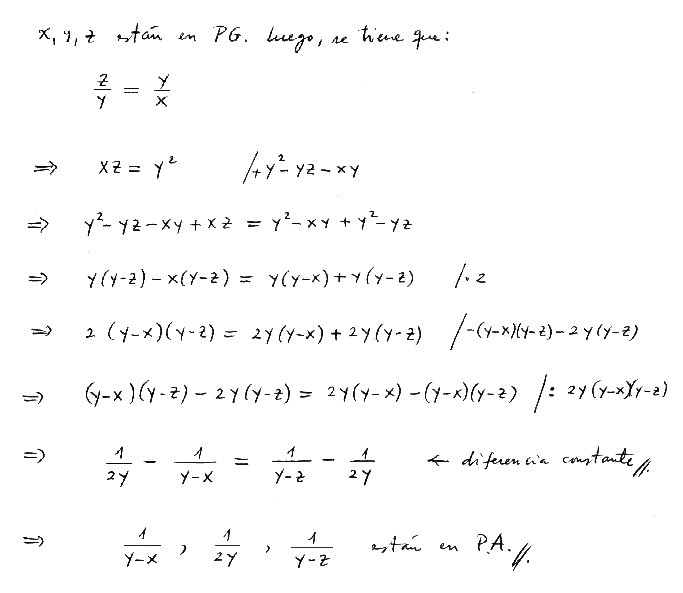 x, y, z están en PG. Luego, se tiene que:
z/y = y/x
⇒ xz = y² /+y²-yz-xy
⇒ y²-yz-xy+xz = y²-xy+y²-yz
⇒ y(y-z)-x(y-z) = y(y-x)+y(y-z) /·2
⇒ 2(y-x)(y-z) = 2y(y-x)+2y(y-z) /-(y-x)(y-z)-2y(y-z)
⇒ (y-x)(y-z)-2y(y-z) = 2y(y-x)-(y-x)(y-z) /: 2y(y-x)(y-z)
⇒ 1/2y - 1/y-x = 1/y-z - 1/2y ← diferencia constante //.
⇒ 1/y-x , 1/2y , 1/y-z están en P.A. //.